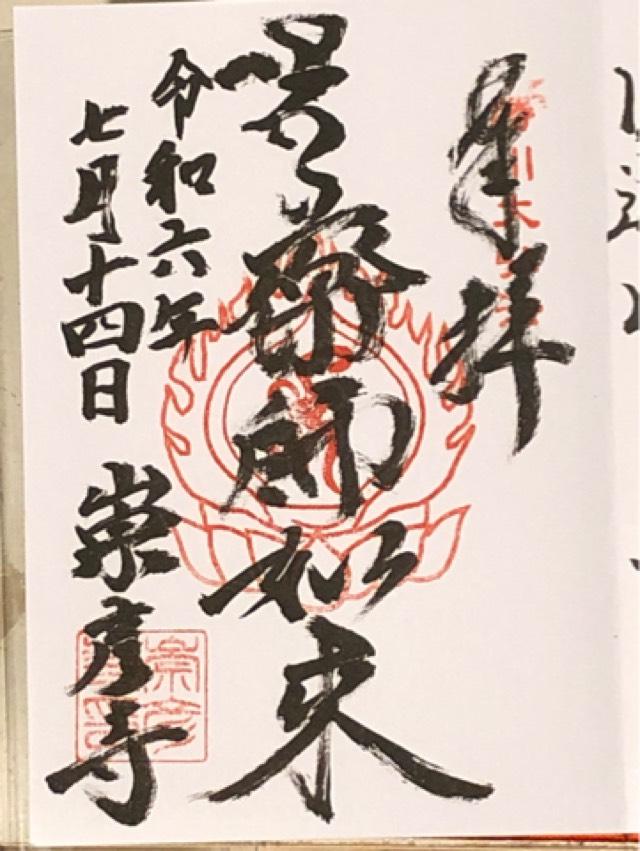 奉拝
薬師如来
令和六年
七月十四日 崇彦寺
崇彦